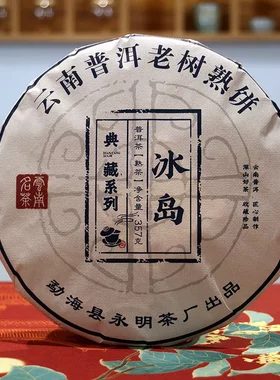 云南普洱老树熟饼
冰岛
普洱茶(熟茶)净含量:357克
典藏系列
云南名茶
云南普洱 匠心制作
深山好茶 收藏珍品
勐海县永明茶厂出品